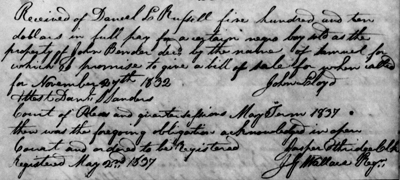 Received of Daniel L Russell five hundred and ten
dollars in full pay for a certain negro boy sold as the
property of John Bender decd by the name of Samuel for
which I promise to give a bill of sale for when called
for November 29th 1832 John Lloyd
Attest Danl Sanders
Court of Pleas and quarter sessions May Term 1837
then was the foregoing obligation acknowledged in open
Court and ordered to be Registered Jasper Etheridge Clk
Registered May 2nd 1837 Wallace Regr